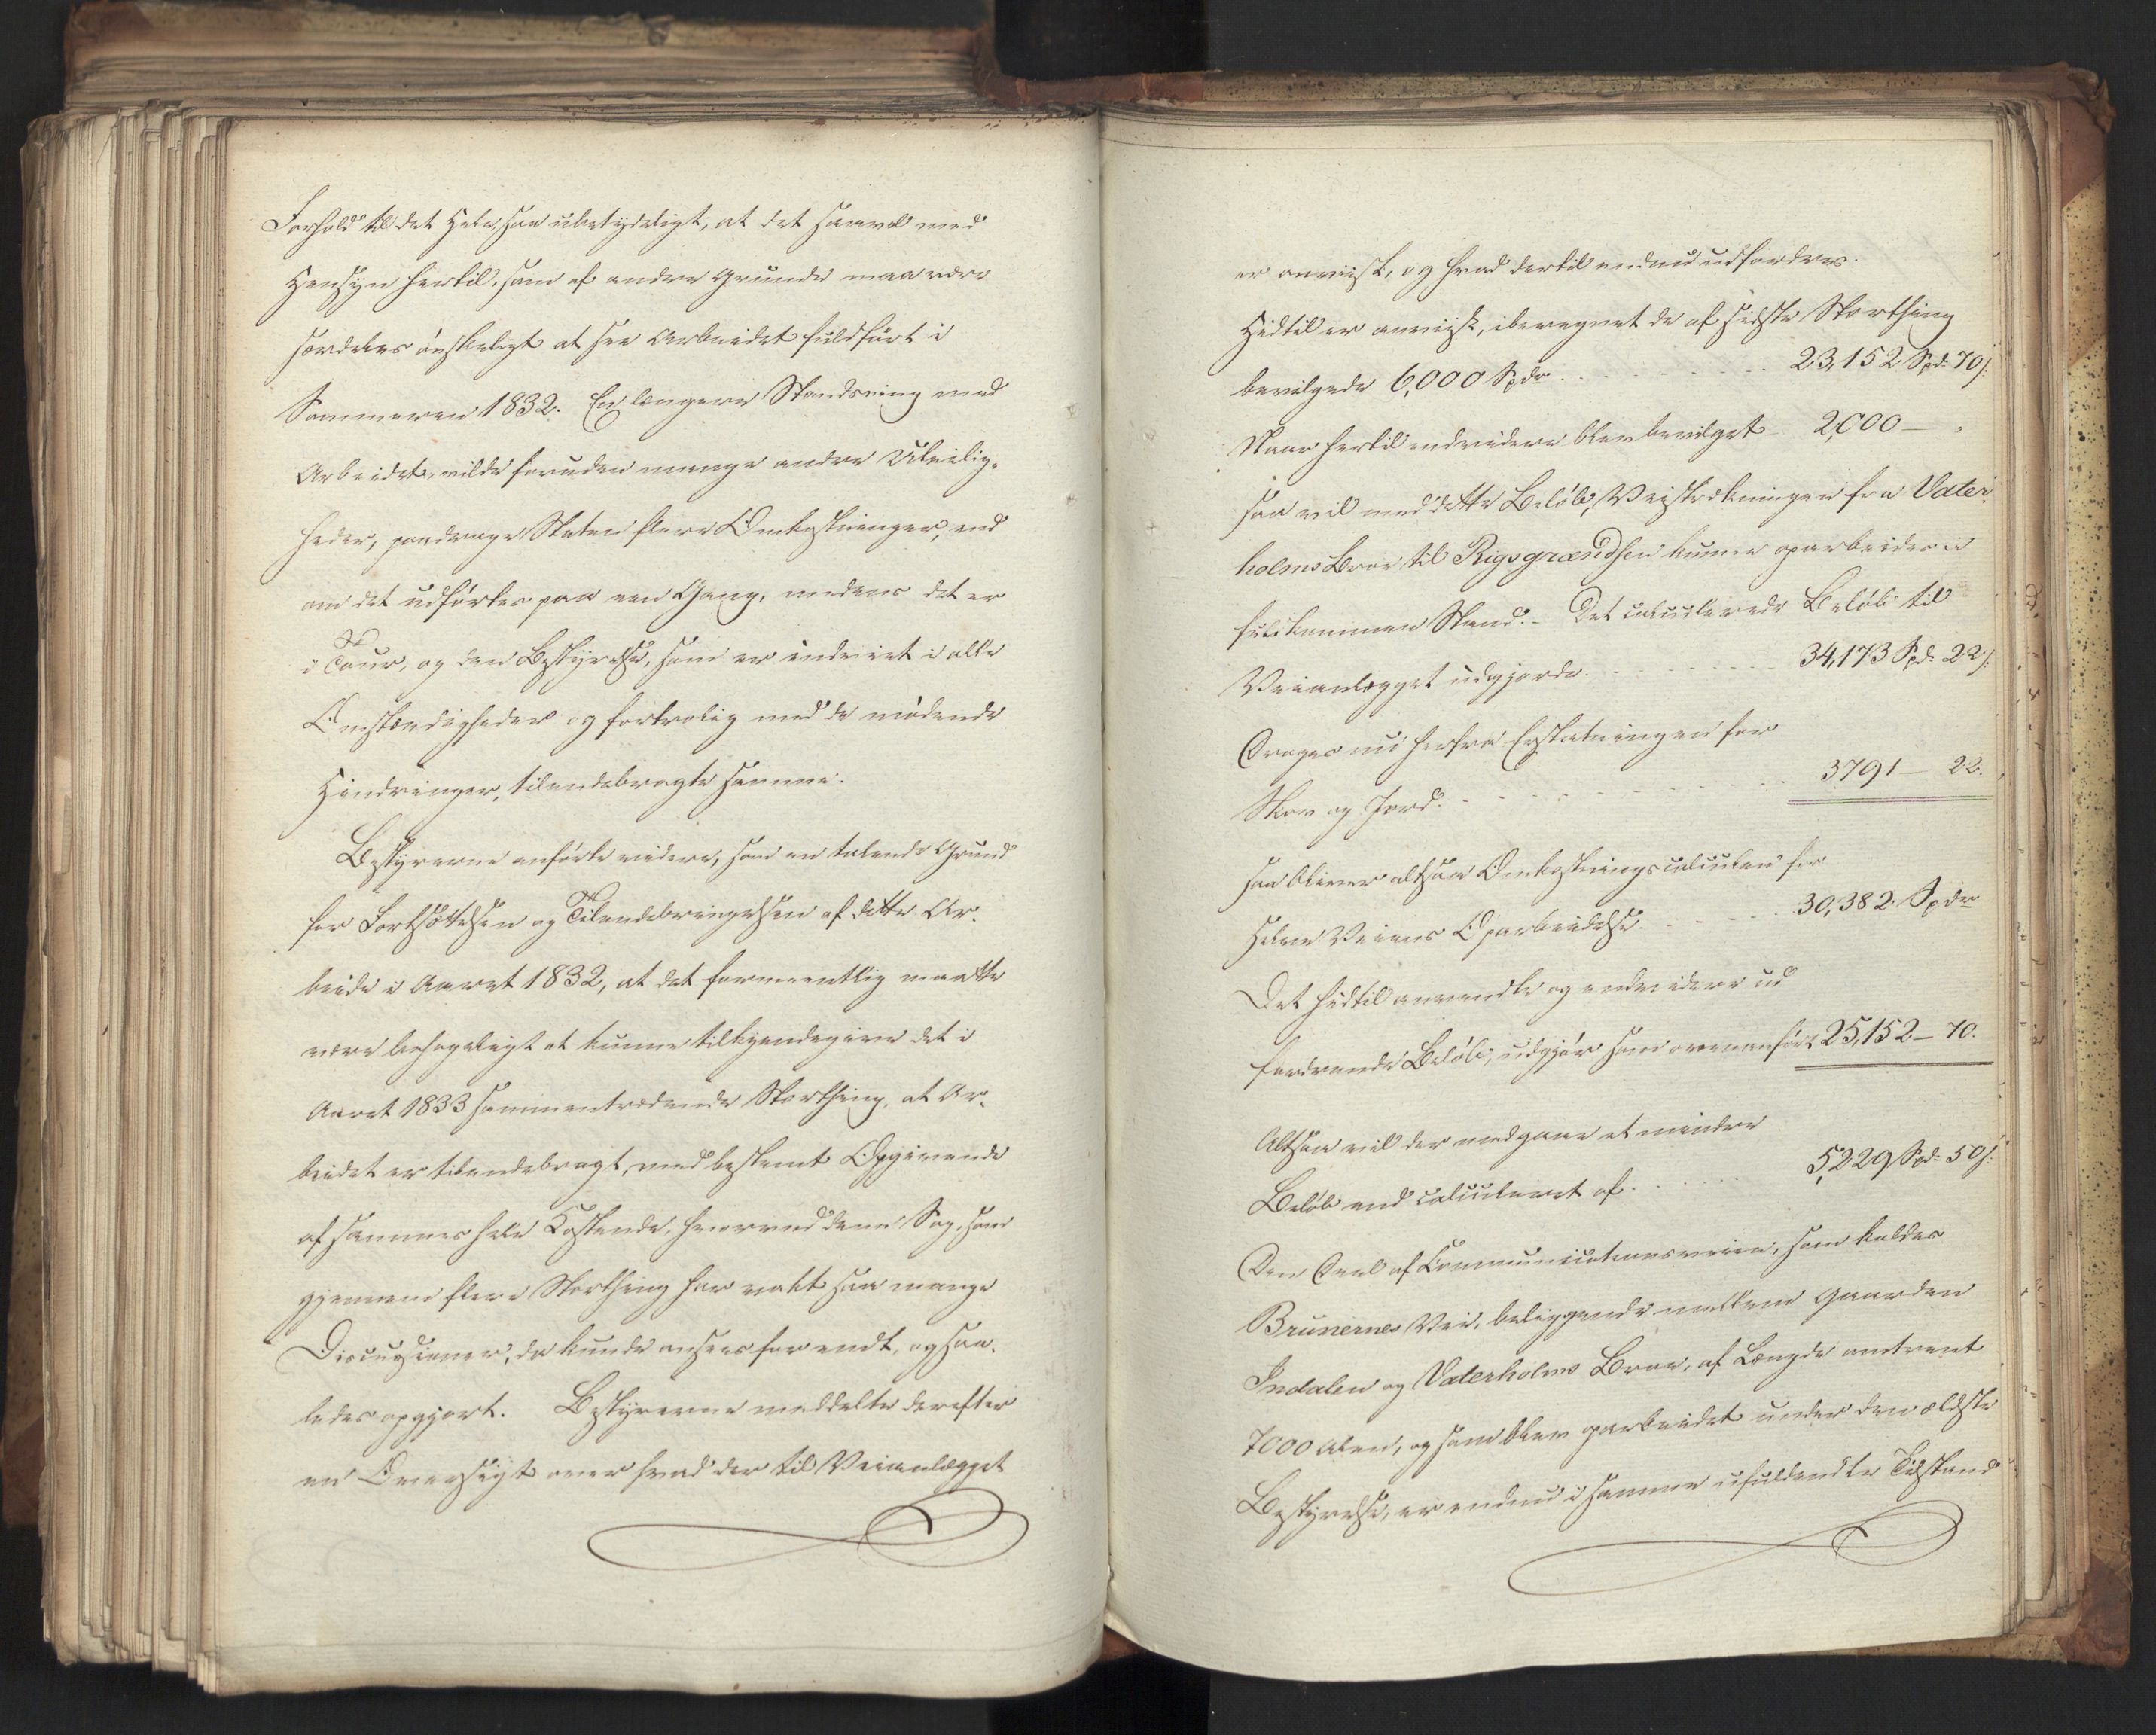 Forhold til det Hele saa ubetydeligt, at det saavel med
Hensyn hertil, som af andre Grunde maa være
særdeles ønskeligt at see Arbeidet fuldført i
Sommeren 1832. En længere Standsning med
Arbeidet, vilde foruden mange andre Uleilig-
heder, paadrage Staten flere Omkostninger, end
om det udførtes paa een Gang, medens det er
i Tour, og den Bestyrelse, som er indviet i alle
Omstændigheder og fortrolig med de mødende
Hindringer, tilendebragte samme.
Bestyrerne anførte videre, som en talende Grund
for Fortsættelsen og Tilendebringelsen af dette Ar-
beide i Aaret 1832, at det formeentlig maatte
være behageligt at kunne tilkjendegive det i
Aaret 1833 sammentrædende Storthing, at Ar-
beidet er tilendebragt, med bestemt Opgivende
af sammes hele Kostende, hvorved denne Sag, som
gjennem flere Storthing har vakt saa mange
Discussioner, da kunde ansees for endt, og saa-
ledes opgjort. Bestyrerne meddelte derefter
en Oversigt over hvad der til Veianlægget
er anviist, og hvad dertil endnu udfordres.
Hidtil er anviist, iberegnet de af sidste Storthing
bevilgede 6,000 Spdr. 23,152 Spd. 70 s.
Naar hertil endvidere blev bevilget 2,000 — "
saa vil med dette Beløb, Veistrækningen fra Vater-
holms Broe til Rigsgrændsen kunne oparbeides i
fuldkommen Stand. - Det calculerede Beløb til
Veianlægget udgjorde 34,173 Spd. 22 s.
Drages nu herfra Erstatningen for
Skov og Jord 3791 — 22.
saa bliver altsaa Omkostningscalculen for
Selve Veiens Oparbeidelse 30,382 Spdr
Det hidtil anvendte og endvidere ud-
fordrende Beløb, udgjør som ovenanført 25,152 — 70.
Altsaa vil der medgaae et mindre
Beløb end calculeret af 5,229 Spd. 50 s.
Den Deel af Communicationsveien, som kaldes
Brunernes Vei, beliggende mellem Gaarden
Indalen og Vaterholms Broe, af Længde omtrent
7000 Alen, og som blev oparbeidet under den ældste
Bestyrelse, er endnu i samme ufuldendte Tilstand